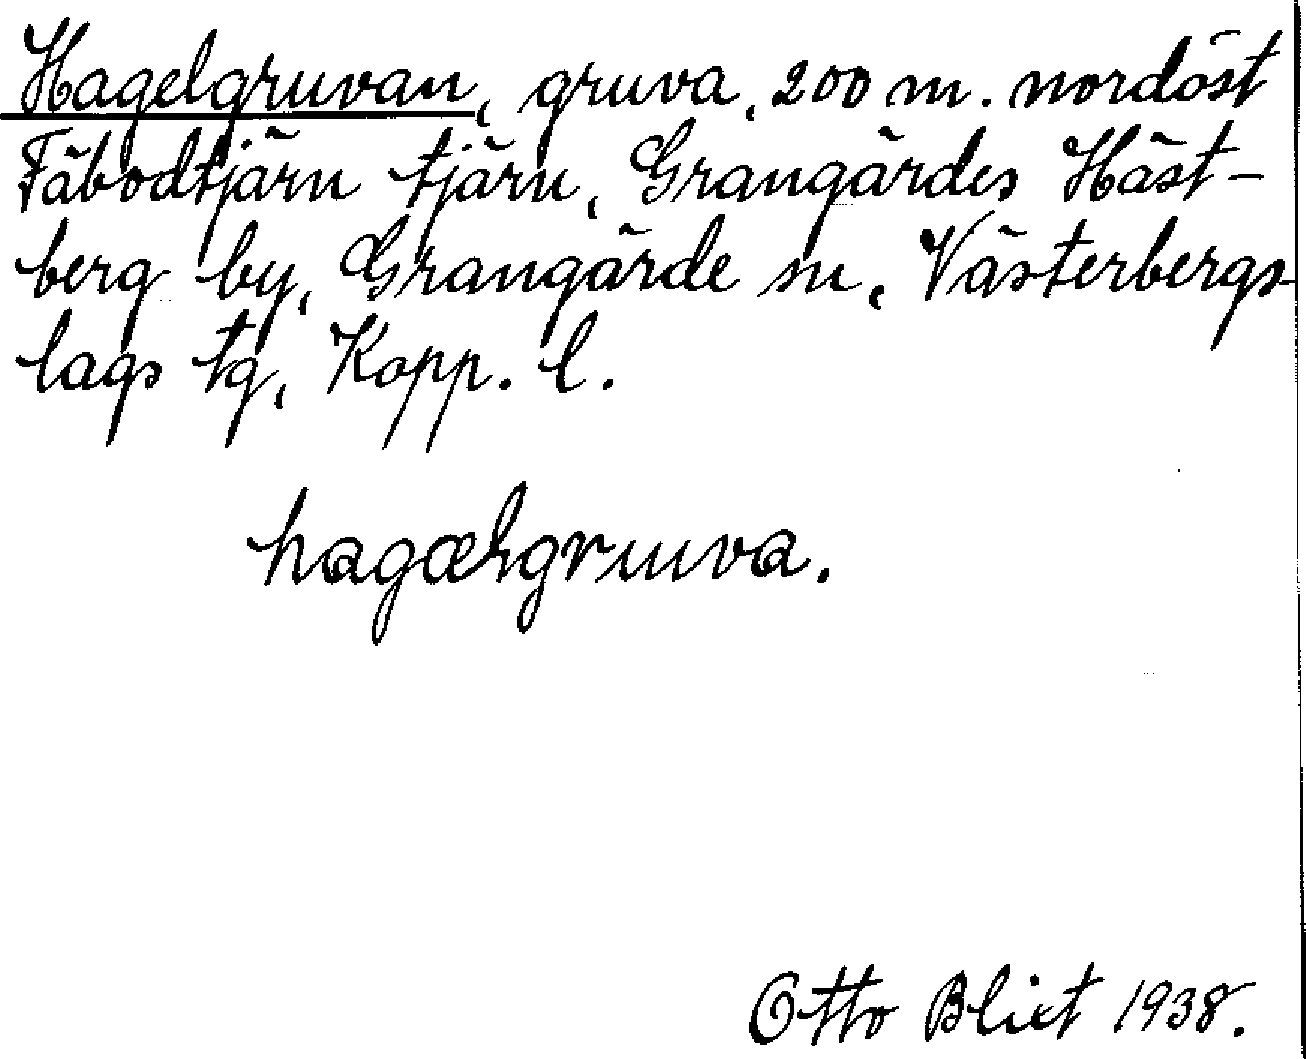 Hagelgruvan, gruva, 200 m. nordöst
Fäbodtjärn tjärn, Grangärdes Häst-
berg by, Grangärde sn, Västerbergs-
lags tg, Kopp. l.
hagælgruva.
Otto Blixt 1938.